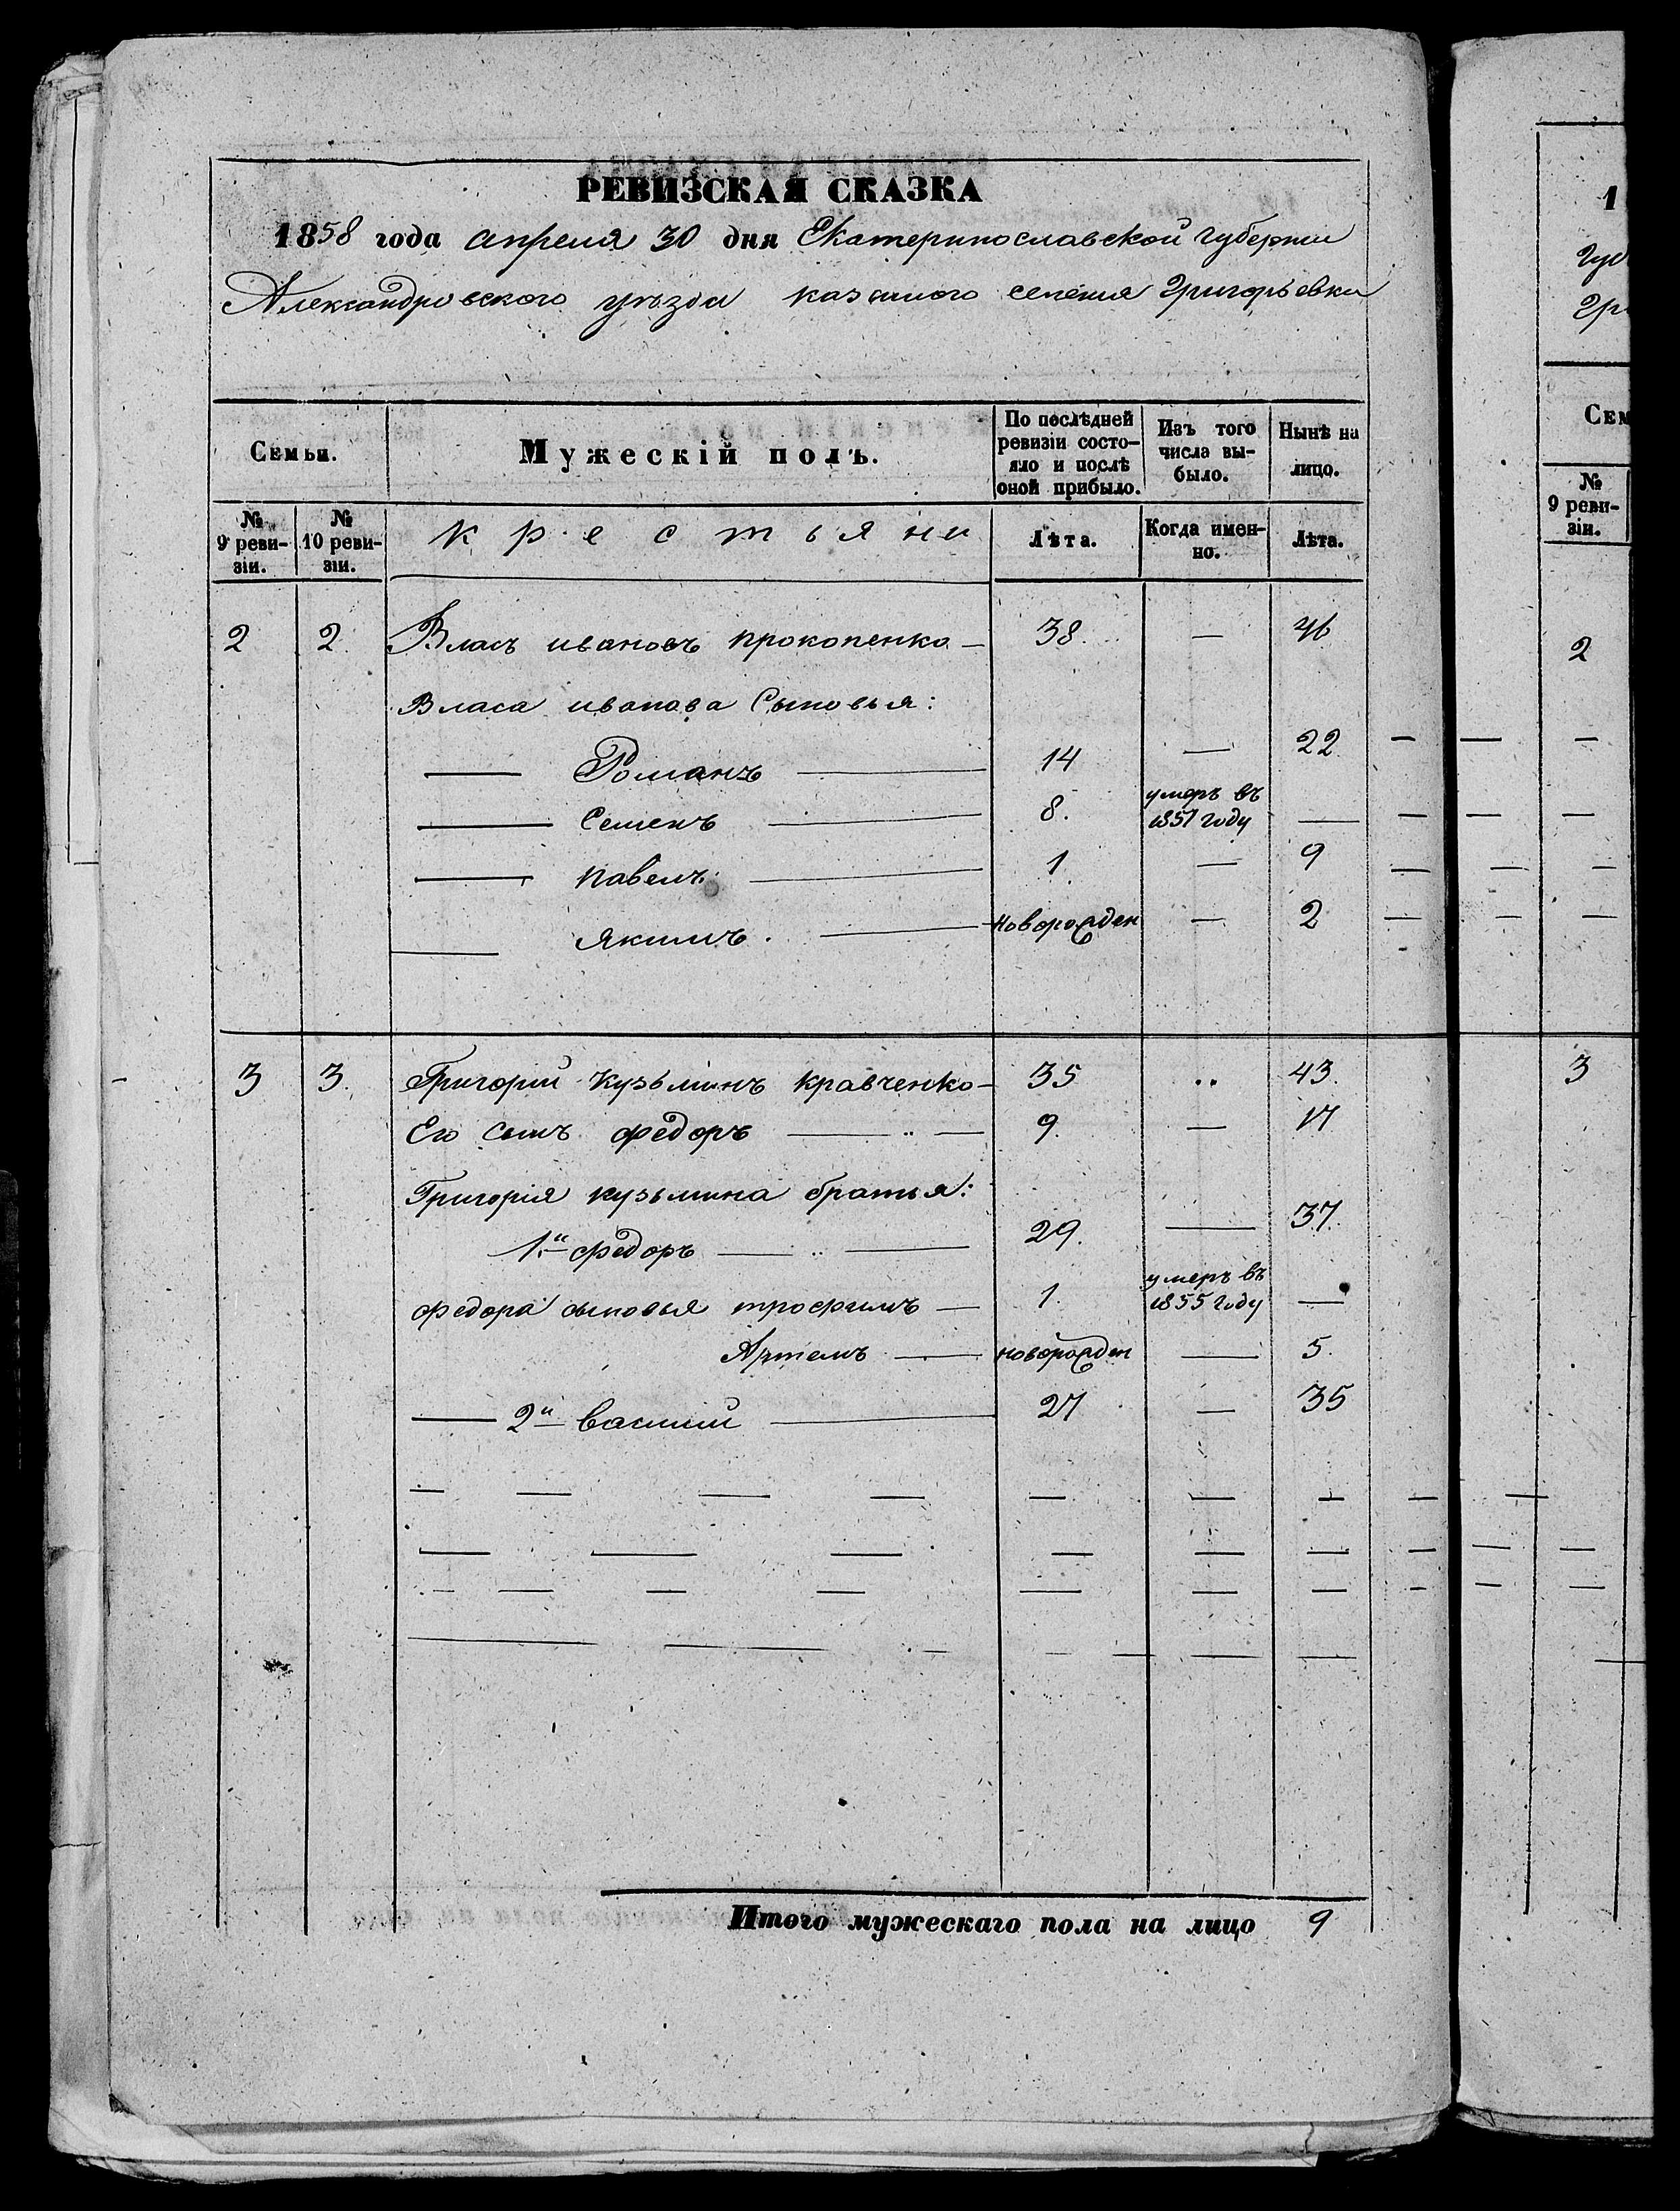 РЕВИЗСКАЯ СКАЗКА
1858 года апреля 30 дня Екатеринославской губернии
Александровского уѣзда казенного селения Григорьевки
Семьи.
Мужескій полъ.
По послѣдней ревизіи состо-
яло и послѣ оной прибыло.
Изъ того числа вы-
было.
Нынѣ на лицо.
№ 9 реви-
зіи.
№ 10 реви-
зіи.
крестьяни
Лѣта.
Когда имен-
но.
Лѣта.
2 2. Власъ ивановъ прокопенко — 38. — 46
Власа иванова Сыновья:
— Романъ — 14 — 22
— Семенъ — 8. умеръ въ 1857 году —
— павелъ — 1. — 9
— якимъ. — новорожден — 2
3 3. Григорий Кузьминъ кравченко — 35 .. 43.
Его сынъ федоръ — .. — 9. — 17
Григорія кузьмина братья:
1.й федоръ — .. — 29. — 37.
федора сыновья трофимъ — 1. умеръ въ 1855 году —
Артемъ — новорожден — 5.
— 2й василий — 27 — 35
Итого мужескаго пола на лицо 9
1
Губ
Гри
Сем
№ 9 реви-
зіи.
2
3